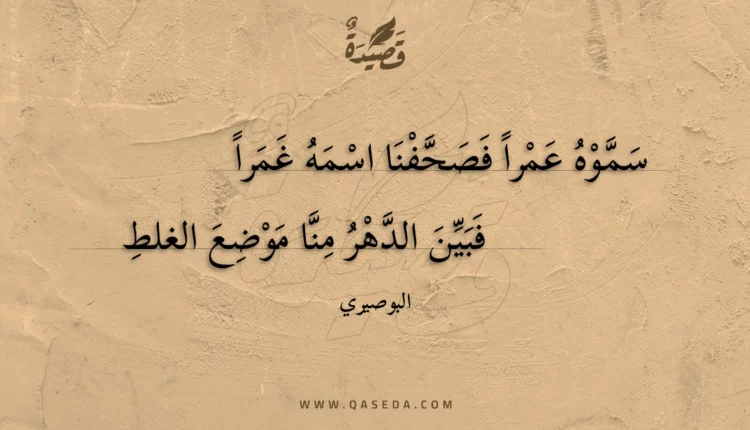 قَصِيدَةٌ
سَمَّوْهُ عَمْراً فَصَحَّفْنَا اسْمَهُ غَمَراً
فَبَيِّنَ الدَّهْرُ مِنَّا مَوْضِعَ الغلطِ
البوصيري
WWW.QASEDA.COM